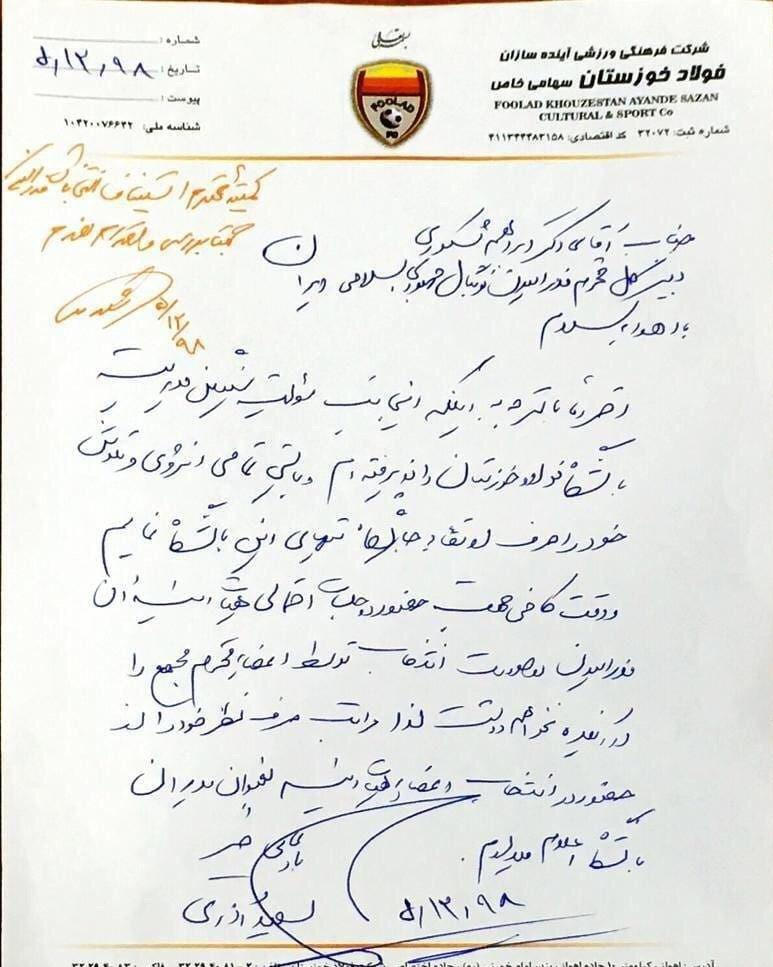 بسمه تعالی
شرکت فرهنگی ورزشی آینده سازان
فولاد خوزستان سهامی خاص
FOOLAD KHOUZESTAN AYANDE SAZAN
CULTURAL & SPORT Co
شماره ثبت: ۳۲۰۷۲ کد اقتصادی: ۴۱۱۳۴۴۴۸۳۱۵۸
FOOLAD
FC
شماره :
تاریخ : ۵,۱۲,۹۸
پیوست :
شناسه ملی: ۱۰۴۲۰۰۷۶۶۳۲
کمیته محترم استیناف انتخابات فدراسیون
جهت بررسی و اقدام لازم
۵/۱۲/۹۸
جناب آقای دکتر ابراهیم شکوری
دبیر کل محترم فدراسیون فوتبال جمهوری اسلامی ایران
با اهداء سلام
احتراماً با توجه به اینکه اینجانب مسئولیت سنگین مدیریت
باشگاه فولاد خوزستان را پذیرفته ام و بایستی تمامی انرژی و تلاش
خود را صرف ارتقاء جایگاه تیمهای این باشگاه نمایم
و وقت کافی جهت حضور در جلسات احتمالی هیات رئیسه آن
فدراسیون بصورت انتخاب توسط اعضای محترم مجمع را
در آینده نخواهم داشت لذا مراتب صرف نظر خود را از
حضور در انتخابات اعضای هیات رئیسه بعنوان مدیران
باشگاه اعلام میدارم.
با تشکر
سعید آذری
۵,۱۲,۹۸